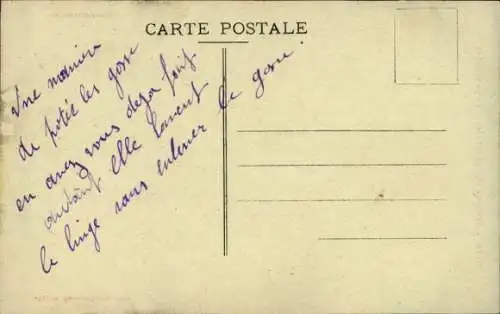 CARTE POSTALE
Une manière
de porter les gosse
en avez vous deja fait
autant elle lavent
le linge sans enlever le gosse.